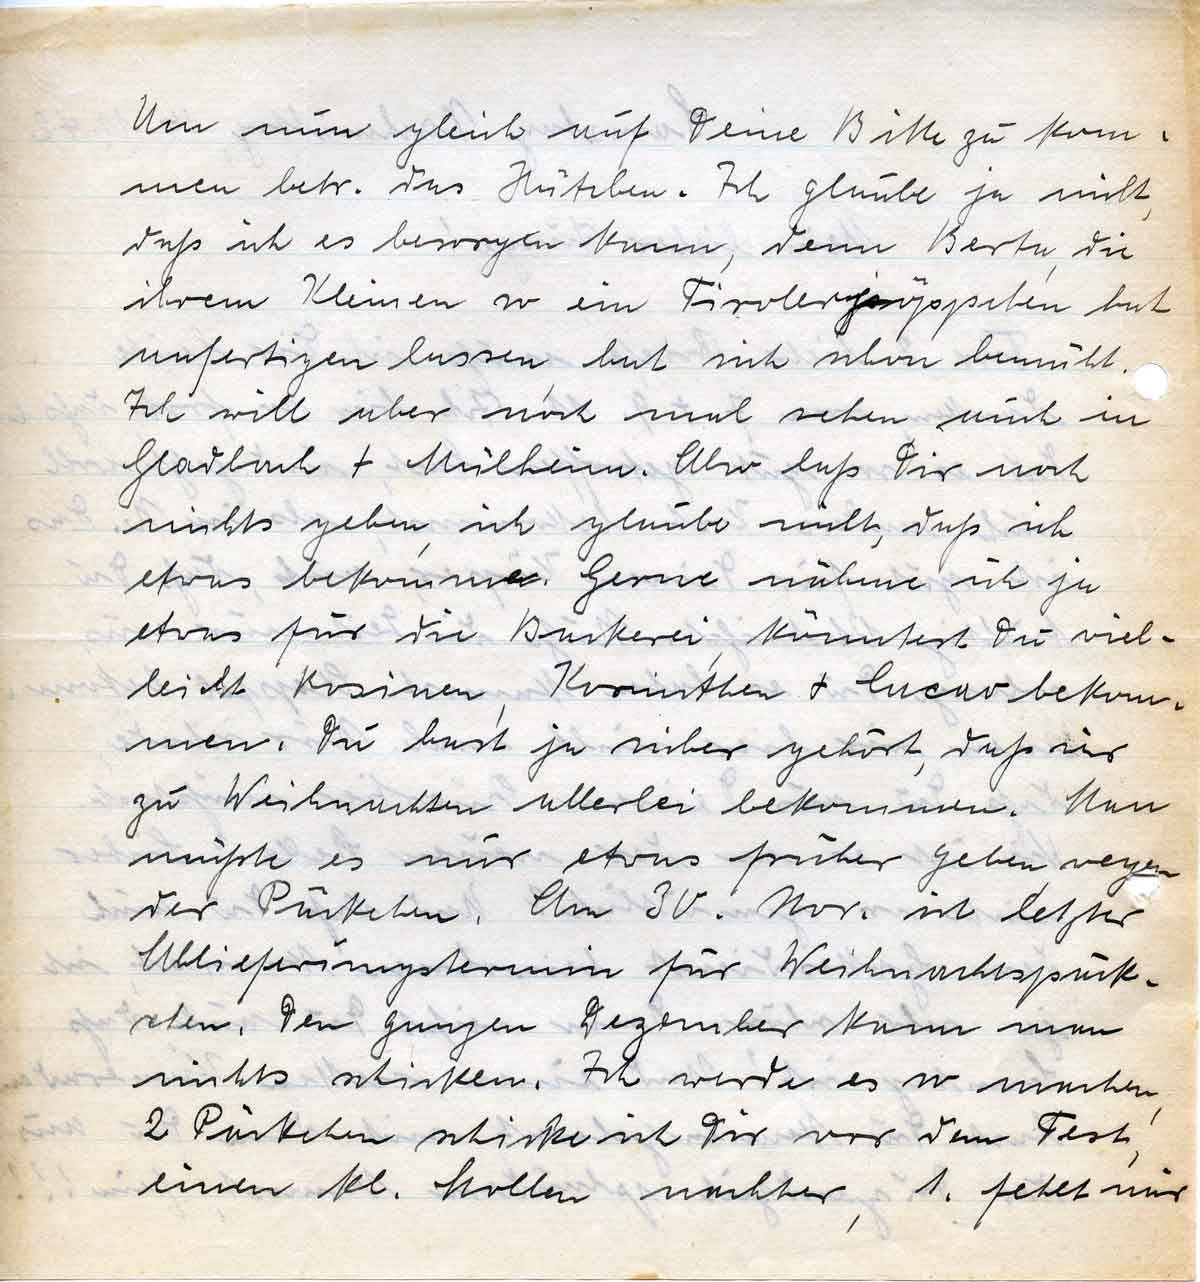 Um nun gleich auf Deine Bitte zu kom-
men betr. das Hütchen. Ich glaube ja nicht,
daß ich es besorgen kann, denn Berta, die
ihrem Kleinen so ein Tirolerjöppchen hat
anfertigen lassen hat sich schon bemüht.
Ich will aber noch mal sehen auch in
Gladbach + Mülheim. Also laß Dir noch
nichts geben, ich glaube nicht, daß ich
etwas bekomme. Gerne nähme ich ja
etwas für die Backerei, könntest Du viel-
leicht Rosinen, Korinthen + Cacao bekom-
men. Du hast ja sicher gehört, daß wir
zu Weihnachten allerlei bekommen. Man
müßte es nur etwas früher geben wegen
der Päckchen. Am 30. Nov. ist letzter
Ablieferungstermin für Weihnachtspäck-
chen. Den ganzen Dezember kann man
nichts schicken. Ich werde es so machen,
2 Päckchen schicke ich Dir vor dem Fest,
einen kl. Stollen nachher, 1. fehlt mir